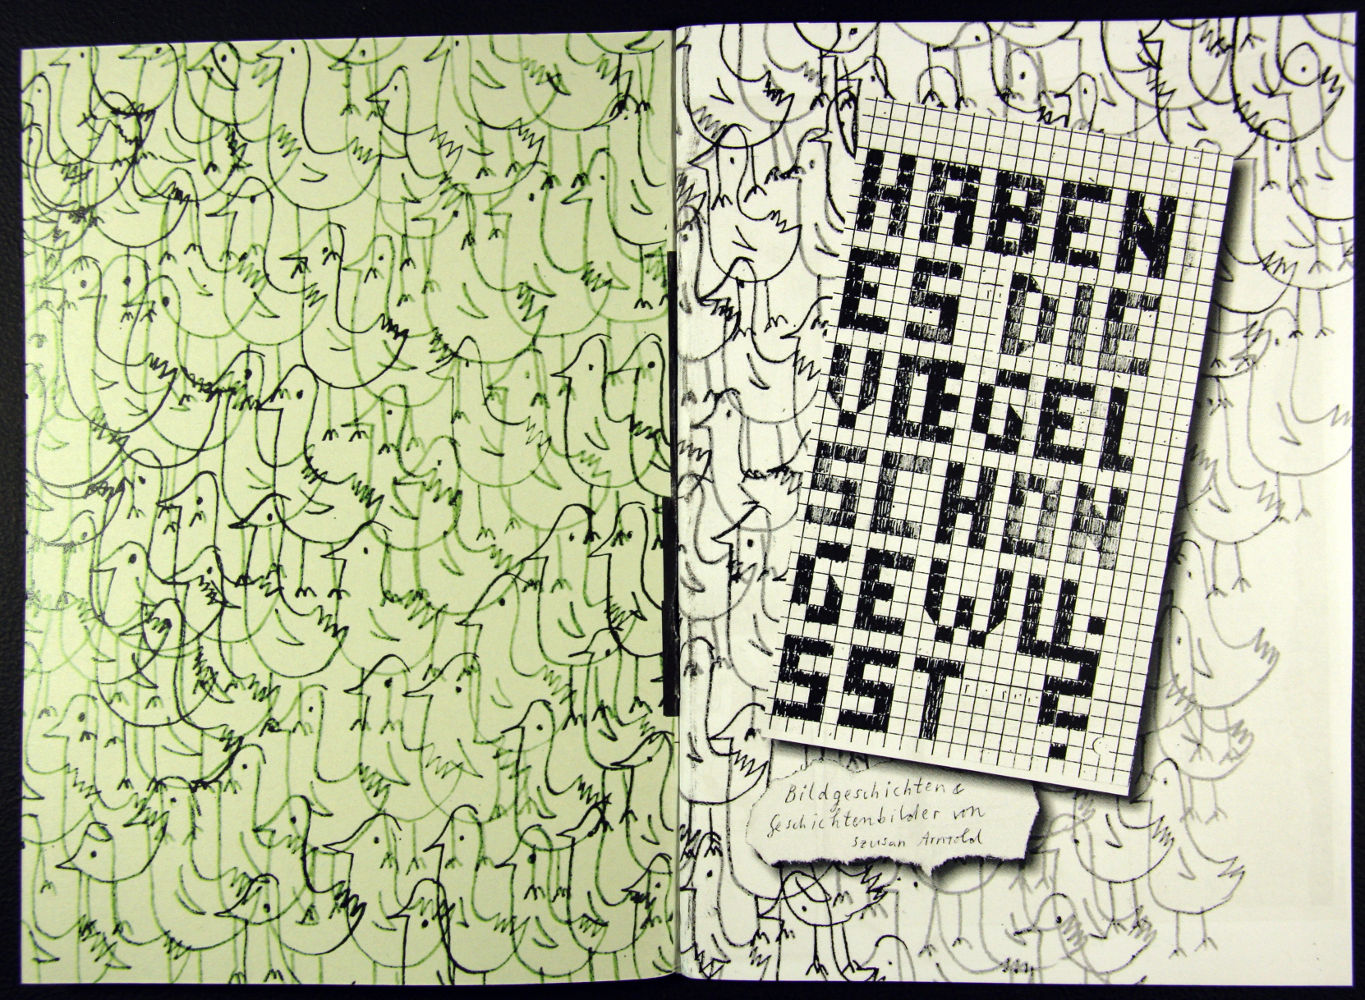 HABEN
ES DIE
VŒGEL
SCHON
GEWU-
SST ?
Bildgeschichten &
Geschichtenbilder von
szusan Arnold